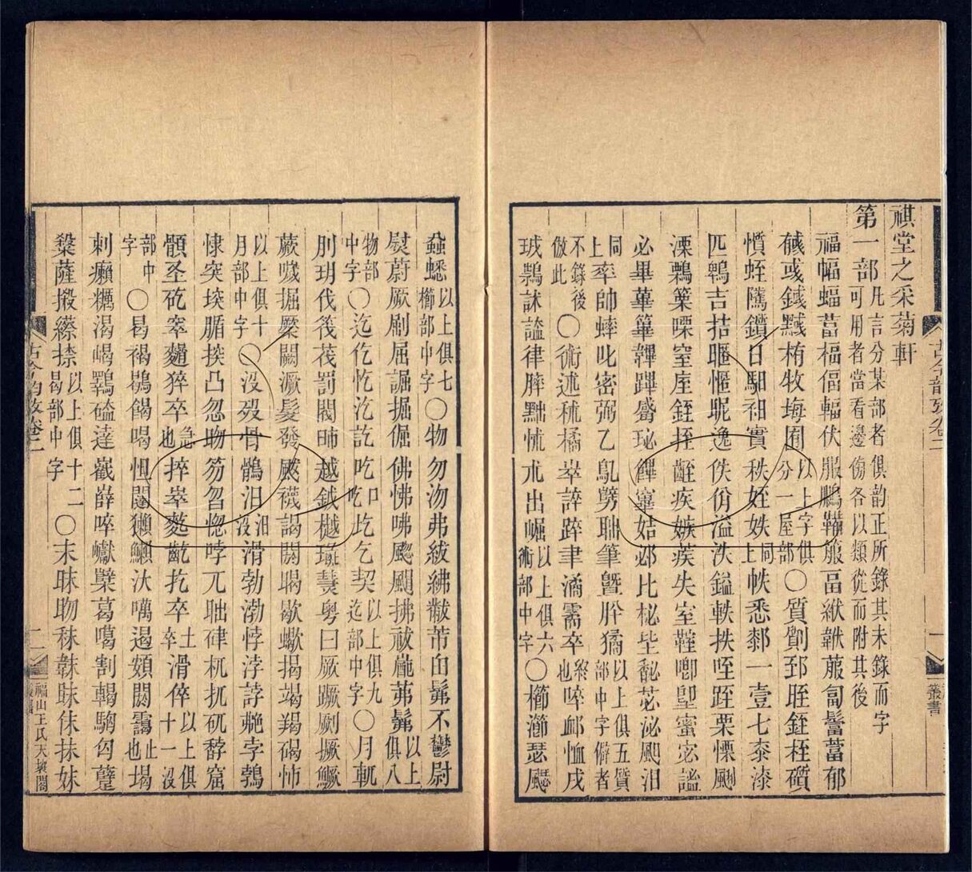 祺堂之采菊軒
第一部凡言分某部者俱韵正所錄其未錄而字可用者當看邊傍各以類從而附其後
福幅蝠葍楅偪輻伏服鵩韛箙畐紱菔匐鬙蕾郁
彧馘黬栯牧坶囿以上字俱分一屋部○質劕郅晊銍桎礩
懫蛭隲鑕日馹衵實秩姪妷同上帙悉郗一壹七桼漆
匹鴄吉拮暱怩昵逸佚佾溢泆鎰軼抶咥跮栗慄颲
溧鷅篥嘌窒屋銍挃齷疾嫉蒺失室鞊唧堲蜜宓謐
必畢蓽篳韠蹕彃珌饆窶姞邲比柲坒馝苾泌颮汨
同上率帥蟀叱密弼乙鳦劈聉筆曁肸獝以上俱五質部中字僻者
不錄後倣此○術述秫橘崒誶踤聿潏霱卒終也啐卹恤戌
珬鷅訹諡律膟黜怵朮出崛以上俱六術部中字○櫛瀄瑟飋
蝨蟋以上俱七櫛部中字○物勿沕弗紱紼黻芾甶髴不鬱尉
熨蔚厥刷屈詘掘倔佛怫咈颰颲拂祓艴茀髴以上俱八
物部中字○迄仡忔汔訖吃口吃圪乞契以上俱九迄部中字○月軏
刖玥伐筏茷罰閥昁越鉞樾𤩰爂粵曰厥蹶劂撅鱖
蕨噦掘橜闕潏髮發颰襪謁閼暍歇蠍揭竭羯碣怖
以上俱十月部中字○沒歿骨鶻汨汨沒滑勃渤悖浡誖艴孛鵓
悖突堗腯揬凸忽昒笏曶惚哱兀朏硉杌扤矹馞窟
顝圣矻窣𪖙猝卒急也捽崒𪗨齕扢卒土滑倅以上俱十一沒
部中字○曷褐鶡餲喝怛闥獺鱍汏噧遏頞閼靄止也堨
剌癩糲渴嵑鶡磕達巀嶭啐巘櫱葛噶割轕騔匃躉
槷薩撥縩捺以上俱十二曷部中字○末昧昒秣韎眜佅抹妹
古今韵攷卷二
一
二
叢書
福山王氏天壤閣